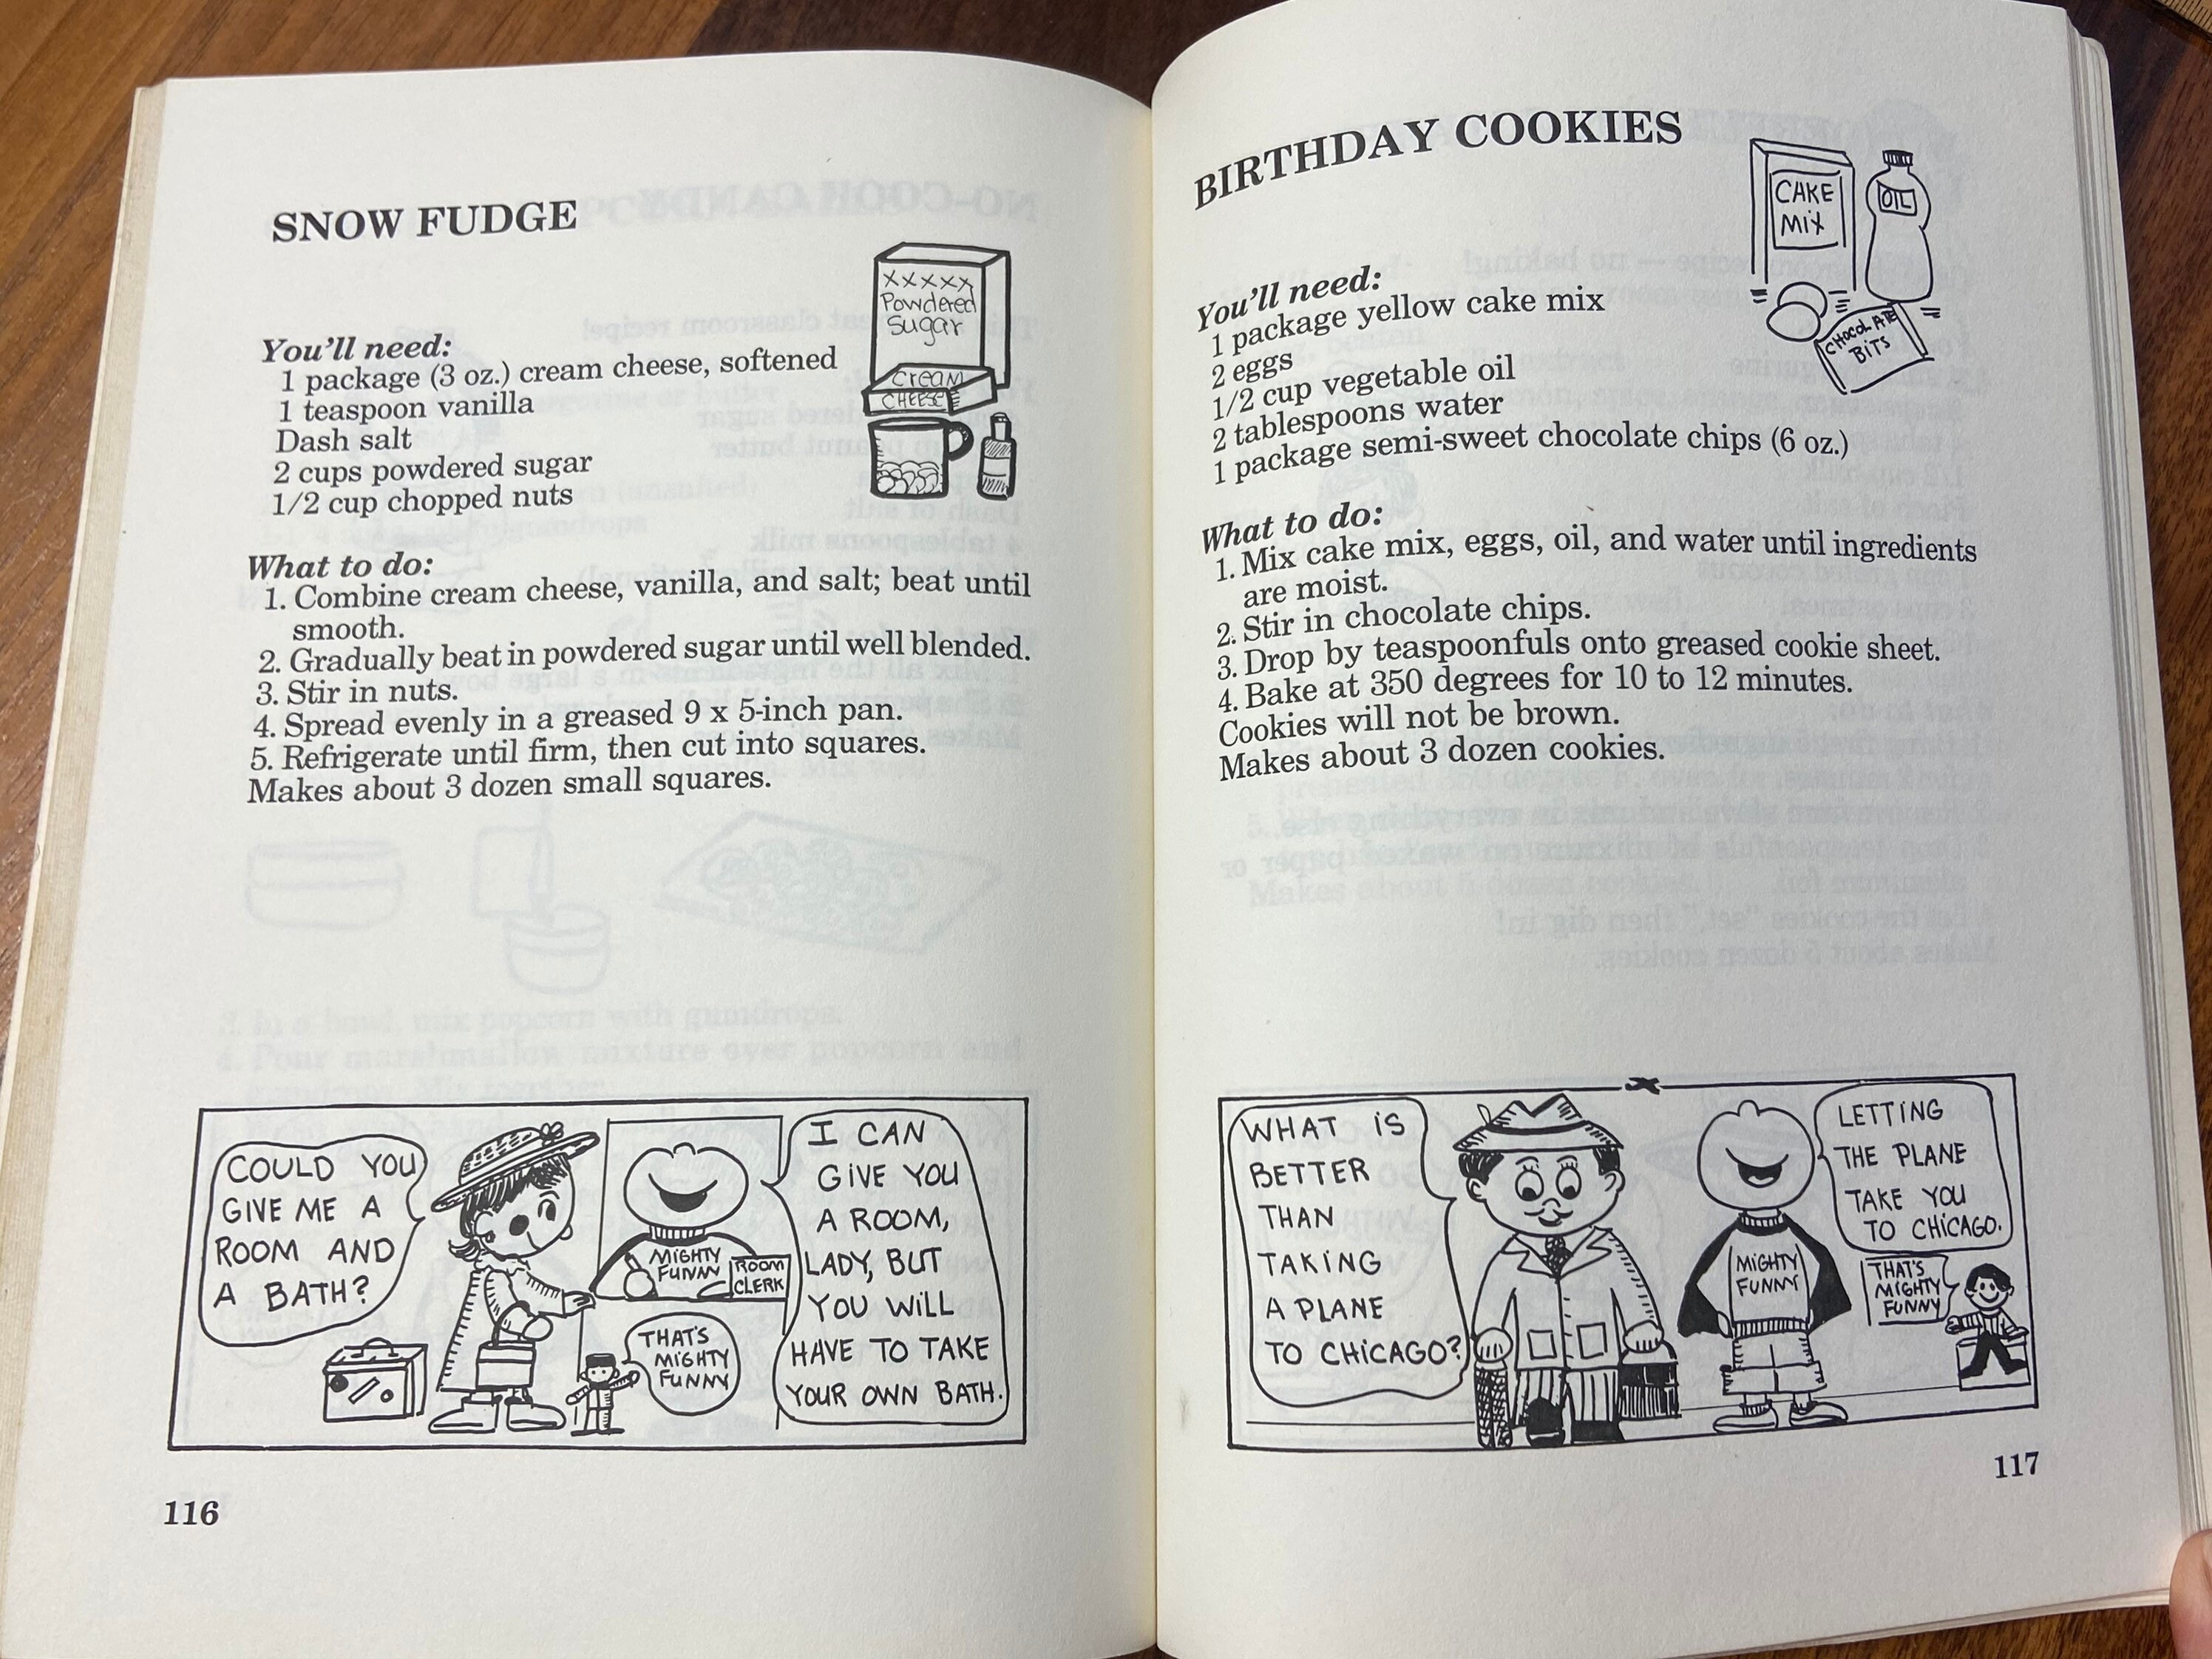 SNOW FUDGE
XXXXX
Powdered
Sugar
CREAM
CHEESE
You'll need:
1 package (3 oz.) cream cheese, softened
1 teaspoon vanilla
Dash salt
2 cups powdered sugar
1/2 cup chopped nuts
What to do:
1. Combine cream cheese, vanilla, and salt; beat until
smooth.
2. Gradually beat in powdered sugar until well blended.
3. Stir in nuts.
4. Spread evenly in a greased 9 x 5-inch pan.
5. Refrigerate until firm, then cut into squares.
Makes about 3 dozen small squares.
COULD YOU
GIVE ME A
ROOM AND
A BATH?
MIGHTY
FUNNY
ROOM
CLERK
I CAN
GIVE YOU
A ROOM,
LADY, BUT
YOU WILL
HAVE TO TAKE
YOUR OWN BATH.
THAT'S
MIGHTY
FUNNY
116
BIRTHDAY COOKIES
CAKE
MIX
OIL
CHOCOLATE
BITS
You'll need:
1 package yellow cake mix
2 eggs
1/2 cup vegetable oil
2 tablespoons water
1 package semi-sweet chocolate chips (6 oz.)
What to do:
1. Mix cake mix, eggs, oil, and water until ingredients
are moist.
2. Stir in chocolate chips.
3. Drop by teaspoonfuls onto greased cookie sheet.
4. Bake at 350 degrees for 10 to 12 minutes.
Cookies will not be brown.
Makes about 3 dozen cookies.
WHAT IS
BETTER
THAN
TAKING
A PLANE
TO CHICAGO?
MIGHTY
FUNNY
LETTING
THE PLANE
TAKE YOU
TO CHICAGO.
THAT'S
MIGHTY
FUNNY
117